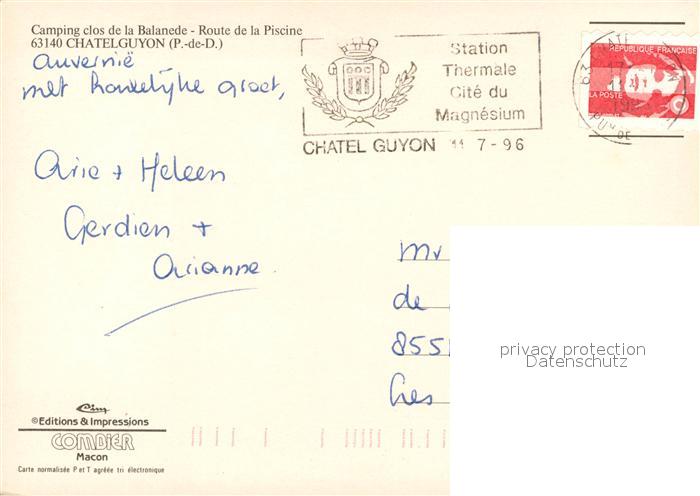 Camping clos de la Balanede - Route de la Piscine
63140 CHATELGUYON (P.-de-D.)
Auvernië
met hartelijke groet,
Arie + Heleen
Gerdien +
Arianne
Station
Thermale
Cité du
Magnésium
CHATEL GUYON 11 7 - 96
RÉPUBLIQUE FRANÇAISE
LA POSTE
Mr
de
855
privacy protection
Datenschutz
cim
©Editions & Impressions
COMBIER
Macon
Carte normalisée P et T agréée tri électronique